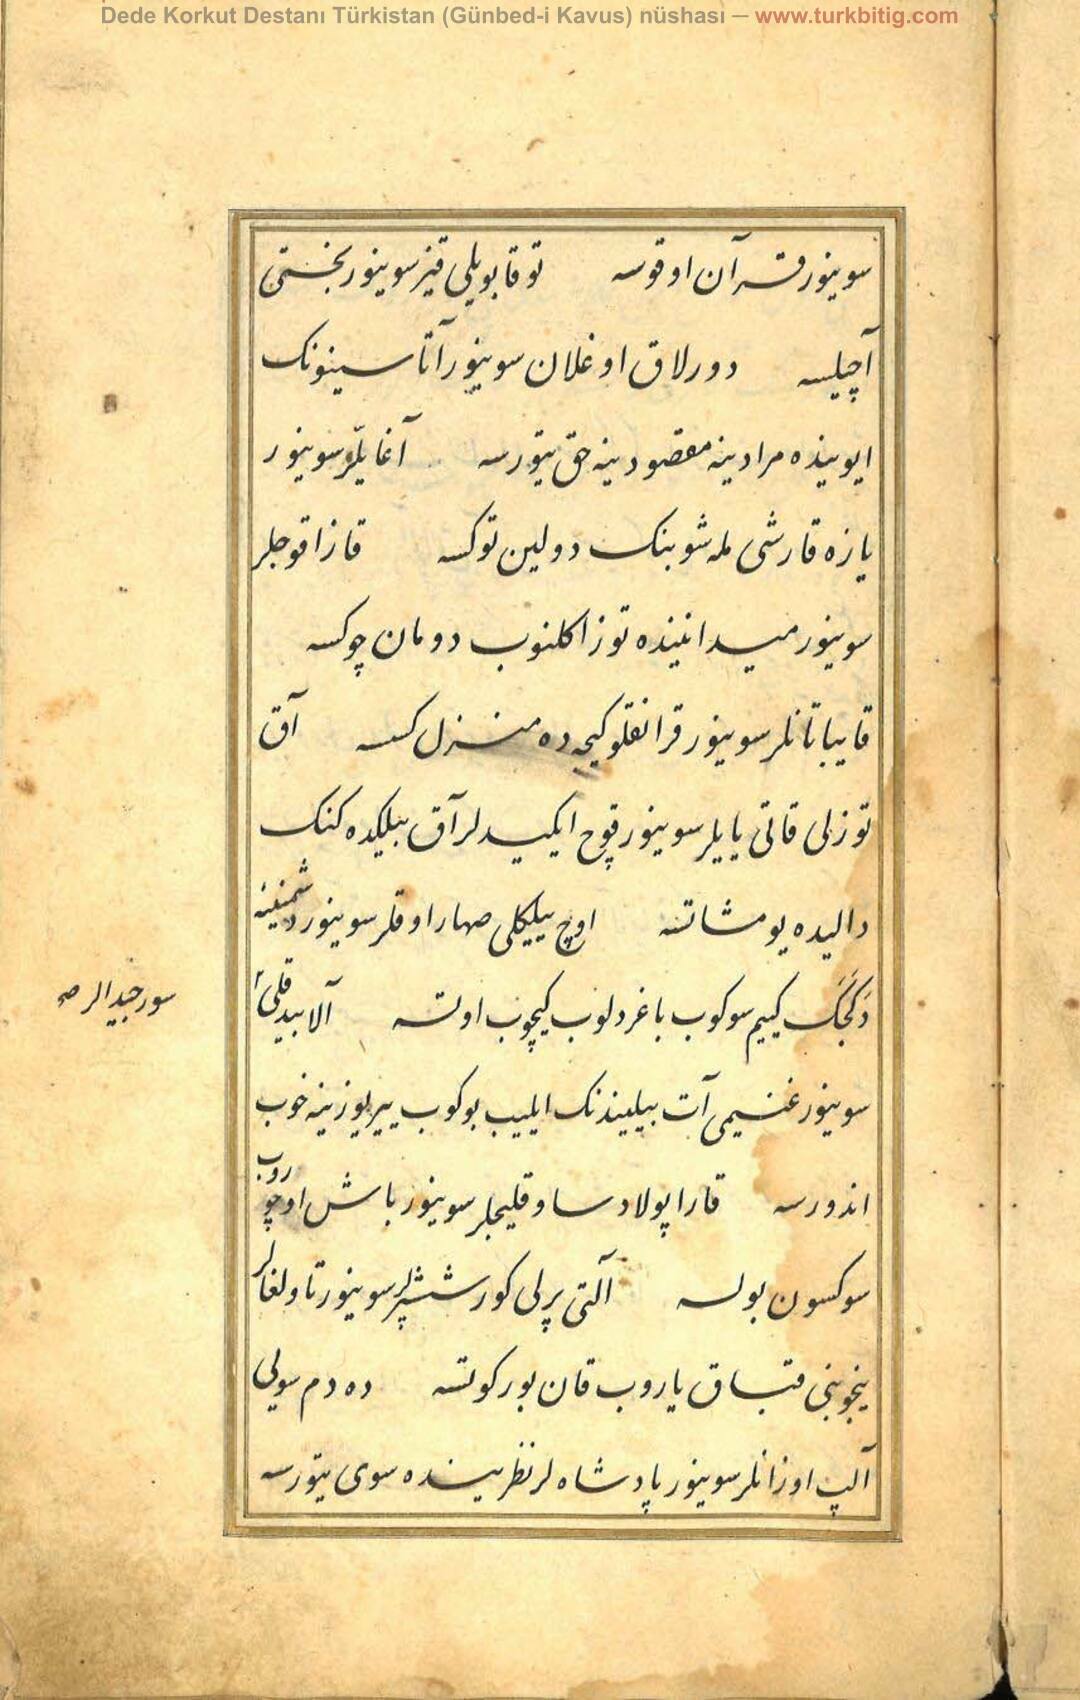 Dede Korkut Destanı Türkistan (Günbed-i Kavus) nüshası — www.turkbitig.com
سوینور قرآن اوقوسه توقا بویلی قیز سوینور بختی
آچیلسه دورلاق اوغلان سوینور آتا سینونک
ایوینده مرادینه مقصودینه حق یتورسه آغایلر سوینور
یازه قارشی مله شوبنک دولین توکسه قازاقوجلر
سوینور میدانینده توز اکلنوب دومان چوکسه
قایباتانلر سوینور قرانقلو کیجه ده منزل کسسه آق
توزلی قاتی یایلر سوینور قوچ ایکیدلر آق بیلکده کنک
دالیده یومشاتسه اوچ ییلیکلی صهار اوقلر سوینور دشمنینه
کییم سوکوب باغردلوب کیچوب اوتسه آلا
سوینور غنیمی آت بیلیندنک ایلیب بوکوب ییر یوزینه خوب
اندورسه قارا پولاد ساو قلیجلر سوینور باش اوچوروب
سوکسون بولسه آلتی پرلی کور ششپرلر سوینور تاولغالر
ینجوبنی قتباق یاروب قان بورکوتسه ده دم سویلی
آلپ اوزانلر سوینور پادشاه لر نظرینده سوی یتورسه